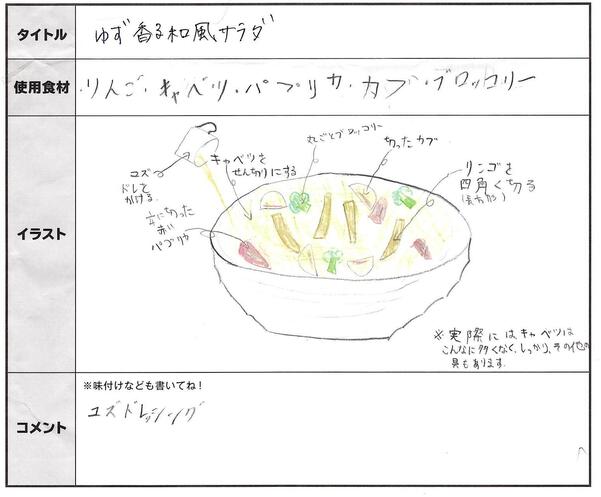 タイトル
ゆず香る和風サラダ
使用食材
・りんご・キャベツ・パプリカ・カブ・ブロッコリー
イラスト
ユズ
ドレを
かける
キャベツを
せん切りにする
丸ごとブロッコリー
切ったカブ
リンゴを
四角く切る
半に切った
赤
パプリカ
※実際にはキャベツは
こんなに多くなく、しっかり、その他の
具もあります。
コメント
※味付けなども書いてね！
ユズドレッシング